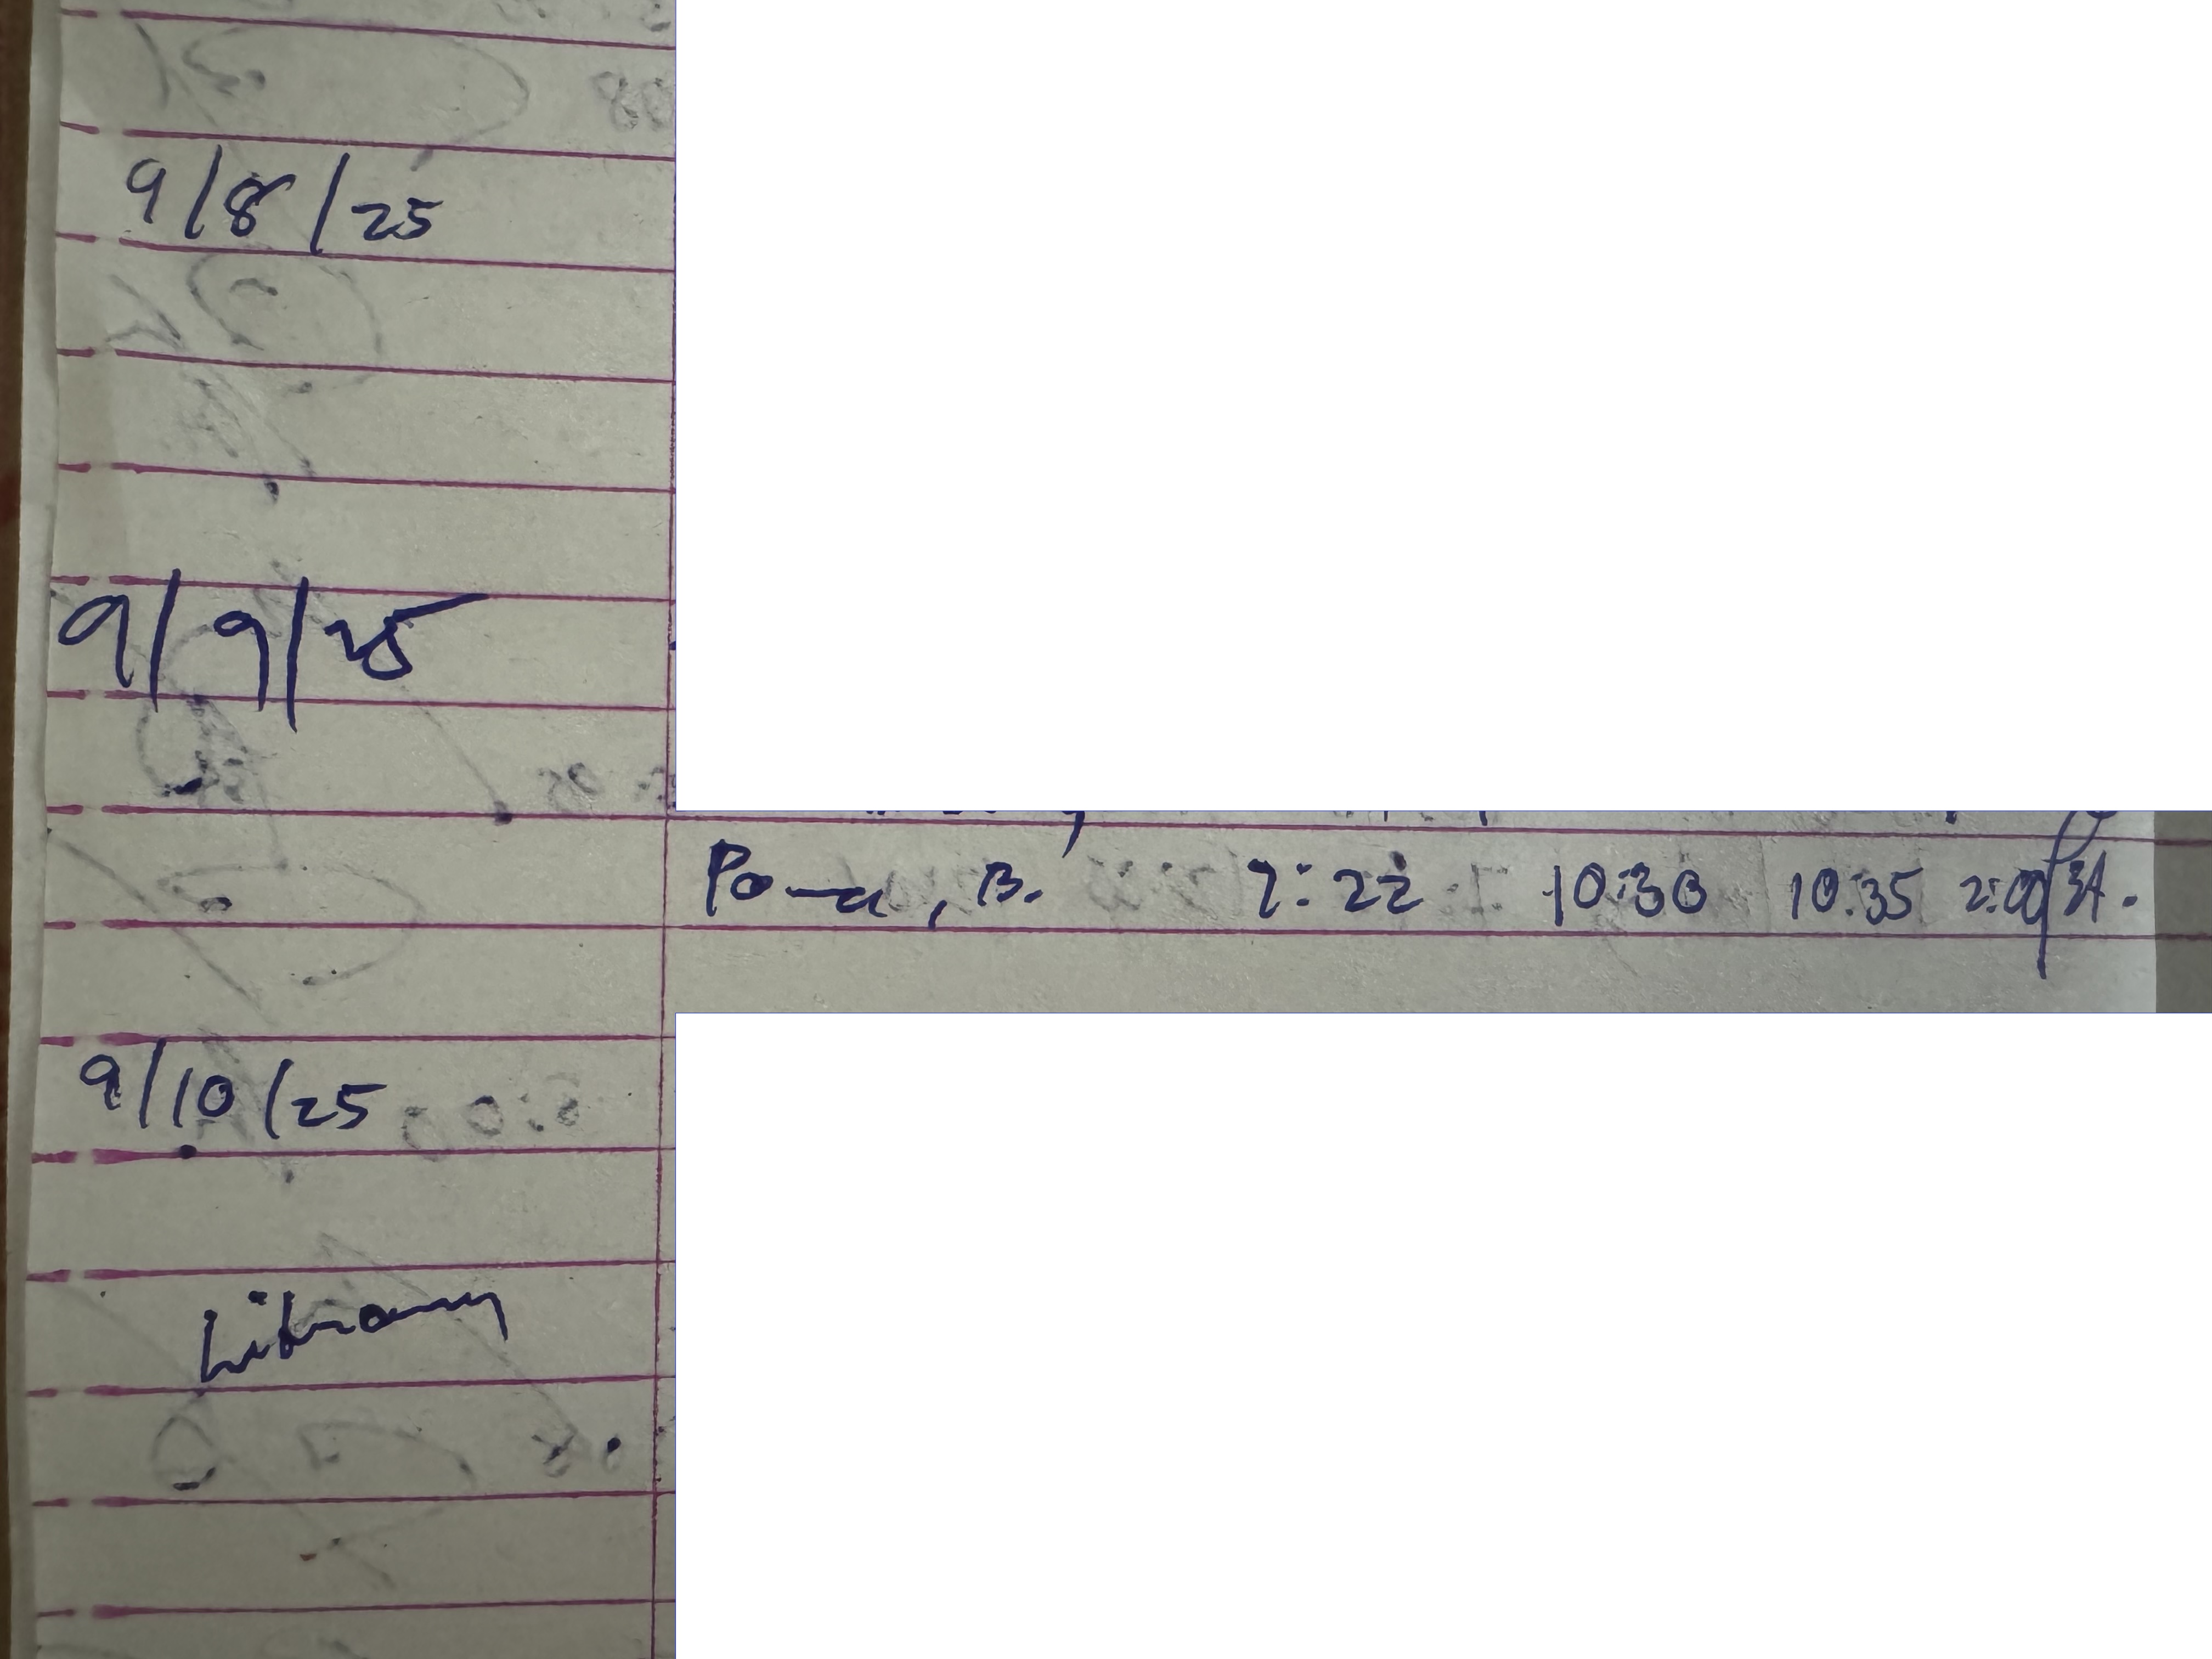 9/8/25
9/9/25
, B. 7:22 10:30 10:35 2:00
9/10/25
Library